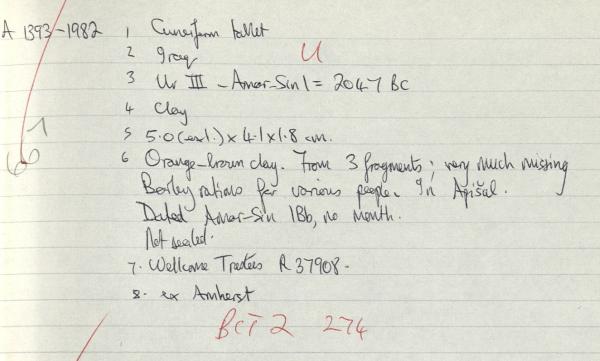 A 1393-1982 1 Cuneiform tablet
2 Iraq U
3 Ur III - Amar-Sin 1 = 2047 BC
4 Clay
5 5.0 (ext.) x 4.1 x 1.8 cm.
6 Orange-brown clay. From 3 fragments; very much missing
Barley rations for various people. In Apišal.
Dated Amar-Sin 1Bb, no month.
Not sealed.
7. Wellcome Trustees R 37908.
8. ex Amherst
BCT 2 274